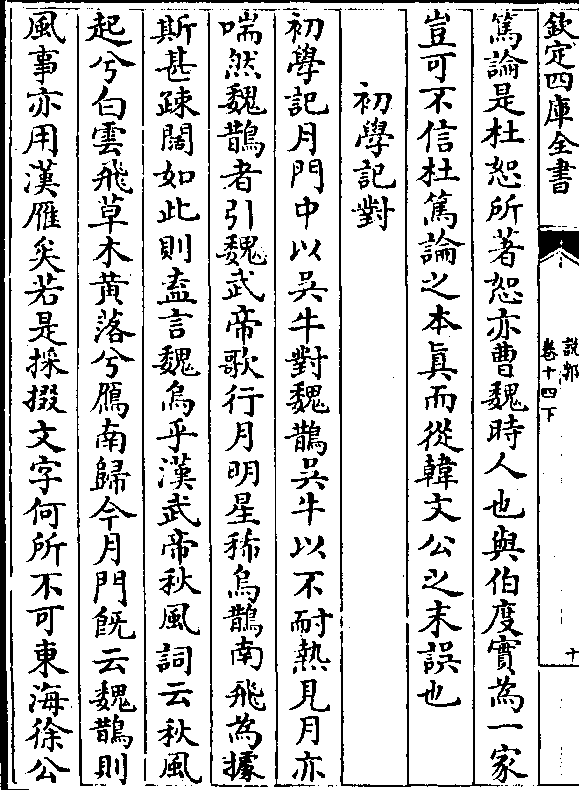 欽定四庫全書
説郛
卷十四下
十
篤論是杜恕所著恕亦曹魏時人也與伯度實為一家
豈可不信杜篤論之本真而從韓文公之末誤也
初學記對
初學記月門中以吳牛對魏鵲吳牛以不耐熱見月亦
喘然魏鵲者引魏武帝歌行月明星稀烏鵲南飛為據
斯甚疎闊如此則盍言魏烏乎漢武帝秋風詞云秋風
起兮白雲飛草木黄落兮鴈南歸今月門旣云魏鵲則
風事亦用漢雁矣若是採掇文字何所不可東海徐公